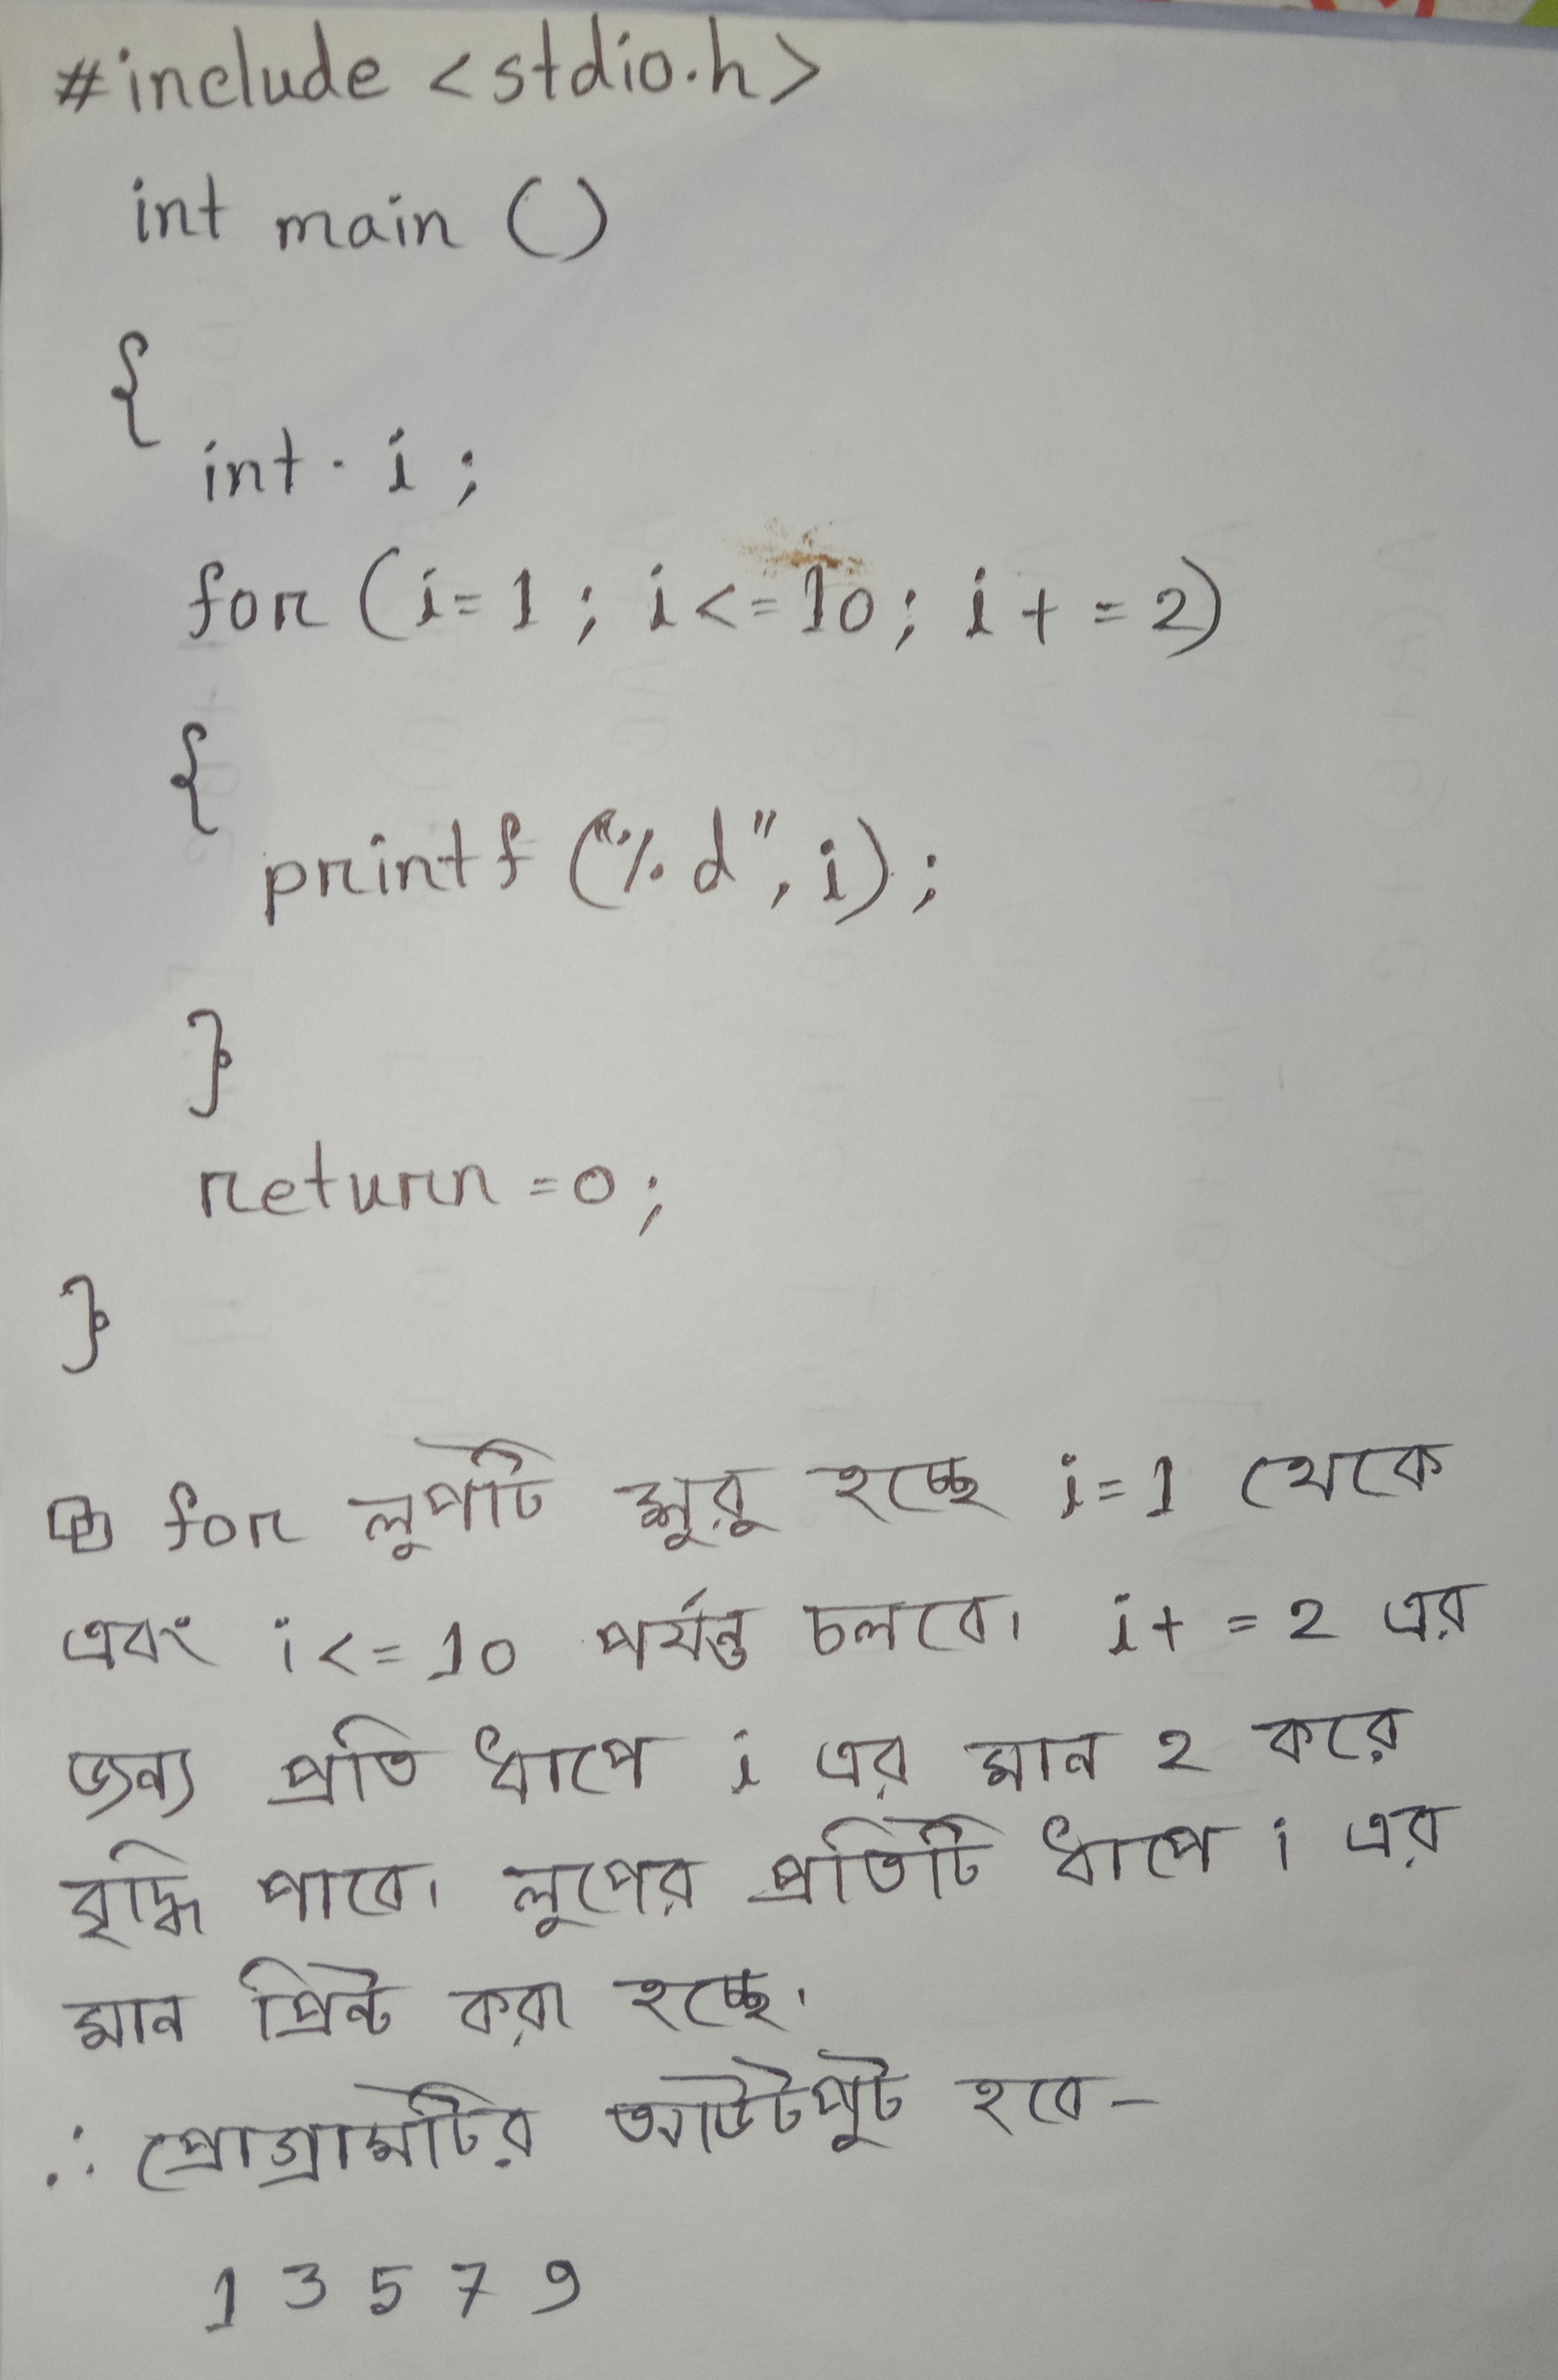 #include <stdio.h>
int main ()
{
int i ;
for (i=1 ; i<=10; i + = 2)
{
printf ("%d", i) ;
}
return = 0 ;
}
for লুপটি শুরু হচ্ছে i=1 থেকে
এবং i<=10 পর্যন্ত চলবে। i+ = 2 এর
জন্য প্রতি ধাপে i এর মান 2 করে
বৃদ্ধি পাবে। লুপের প্রতিটি ধাপে i এর
মান প্রিন্ট করা হচ্ছে।
∴ প্রোগ্রামটির আউটপুট হবে-
1 3 5 7 9